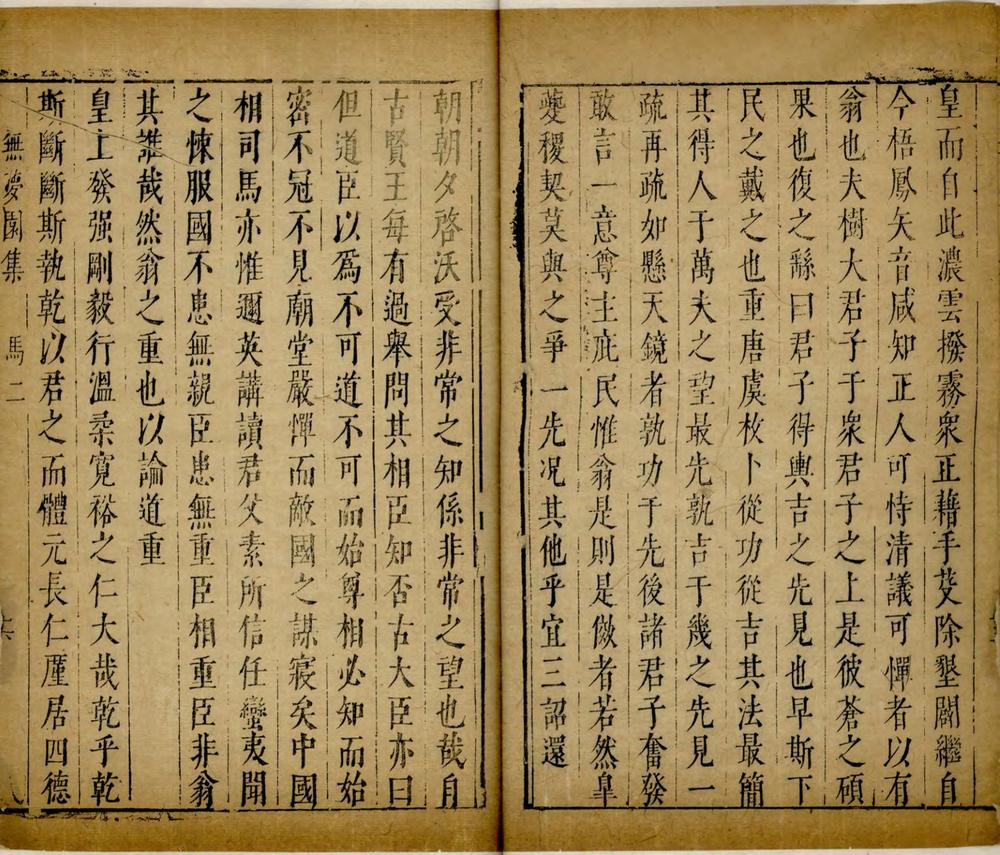 皇而自此濃雲撥霧衆正藉手芟除墾闢繼自
今梧鳳矢音咸知正人可恃清議可憚者以有
翁也夫樹大君子于衆君子之上是彼蒼之碩
果也復之繇曰君子得輿吉之先見也早斯下
民之戴之也重唐虞枚卜從功從吉其法最簡
其得人于萬夫之望最先孰吉于幾之先見一
疏再疏如懸天鏡者孰功于先後諸君子奮發
敢言一意尊主庇民惟翁是則是傚者若然皐
夔稷契莫與之爭一先况其他乎宜三詔還
朝朝夕啓沃受非常之知係非常之望也哉自
古賢王每有過舉問其相臣知否古大臣亦曰
但道臣以爲不可道不可而始尊相必知而始
密不冠不見廟堂嚴憚而敵國之謀寢矣中國
相司馬亦惟邇英講讀君父素所信任蠻夷聞
之悚服國不患無親臣患無重臣相重臣非翁
其誰哉然翁之重也以論道重
皇上發强剛毅行溫柔寬裕之仁大哉乾乎乾
斯斷斷斯執乾以君之而體元長仁厘居四德
無夢園集 馬二